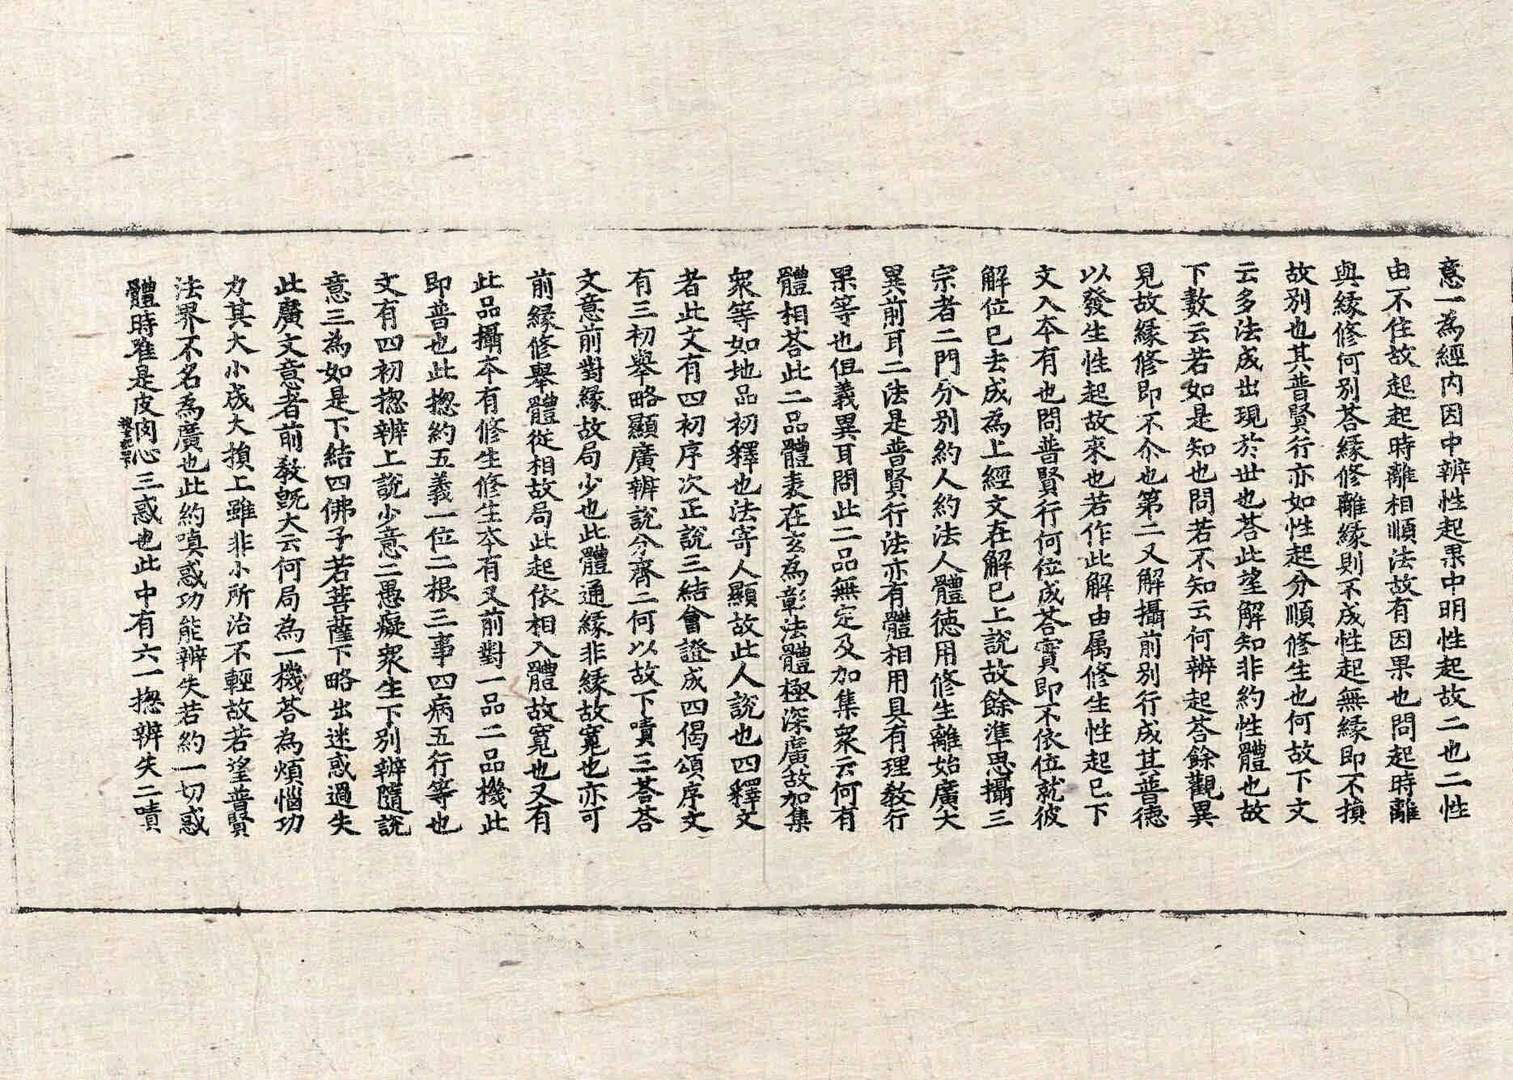 意一為經內因中辨性起果中明性起故二也二性
由不住故起起時離相順法故有因果也問起時離
與緣修何別荅緣修離緣則不成性起無緣即不損
故別也其普賢行亦如性起分順修生也何故下文
云多法成出現於世也荅此望解知非約性體也故
下數云若如是知也問若不知云何辨起荅餘觀異
見故緣修即不尒也第二又解攝前別行成其普德
以發生性起故來也若作此解由属修生性起已下
文入夲有也問普賢行何位成荅實即不依位就彼
解位已去成為上經文在解已上說故餘準思攝三
宗者二門分別約人約法人體德用修生離始廣大
異前耳二法是普賢行法亦有體相用具有理教行
果等也但義異耳問此二品無定及加集衆云何有
體相荅此二品體表在玄為彰法體極深廣故加集
衆等如地品初釋也法寄人顯故此人說也四釋文
者此文有四初序次正說三結會證成四偈頌序文
有三初舉略顯廣辨說分齊二何以故下嘖三荅荅
文意前對緣故局少也此體通緣非緣故寬也亦可
前緣修舉體從相故局此起依相入體故寬也又有
此品攝夲有修生修生夲有又前對一品二品機此
即普也此揔約五義一位二根三事四病五行等也
文有四初揔辨上說少意二愚癡衆生下別辨隨說
意三為如是下結四佛子若菩薩下略出迷惑過失
此廣文意者前教旣大云何局為一機荅為煩惱功
力其大小成大損上雖非小所治不輕故若望普賢
法界不名為廣也此約嗔惑功能辨失若約一切惑
體時唯是皮肉心三惑也此中有六一揔辨失二嘖